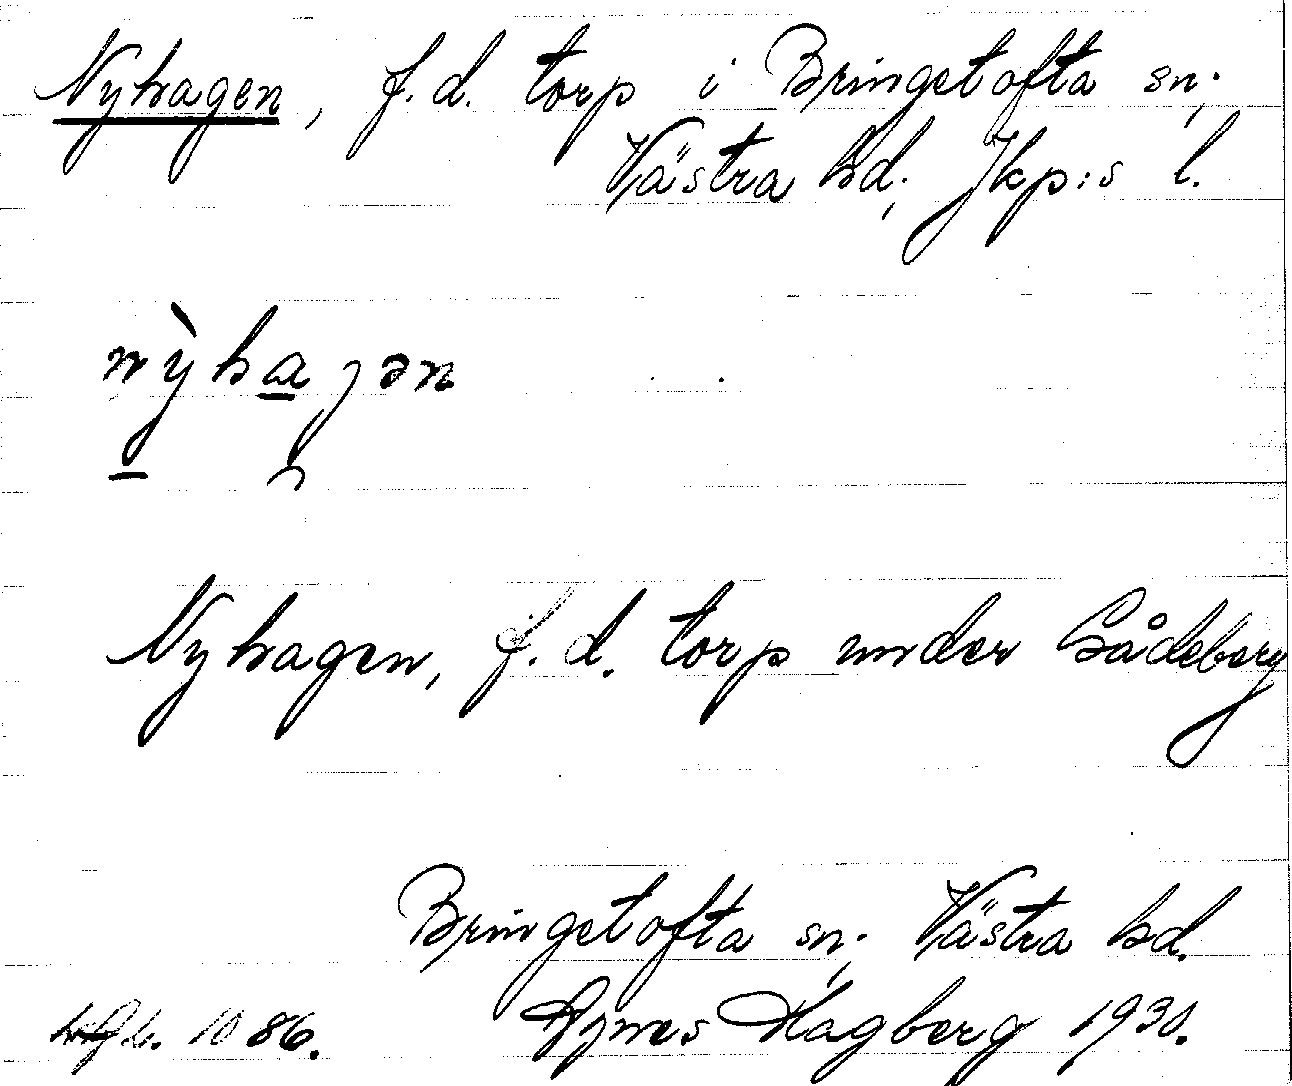 Nyhagen, f.d. torp i Bringetofta sn;
Västra hd; Jkp:s l.
nỳhagən
Nyhagen, f.d. torp under Gådeberg
Bringetofta sn; Västra hd.
86. Agnes Hagberg 1930.